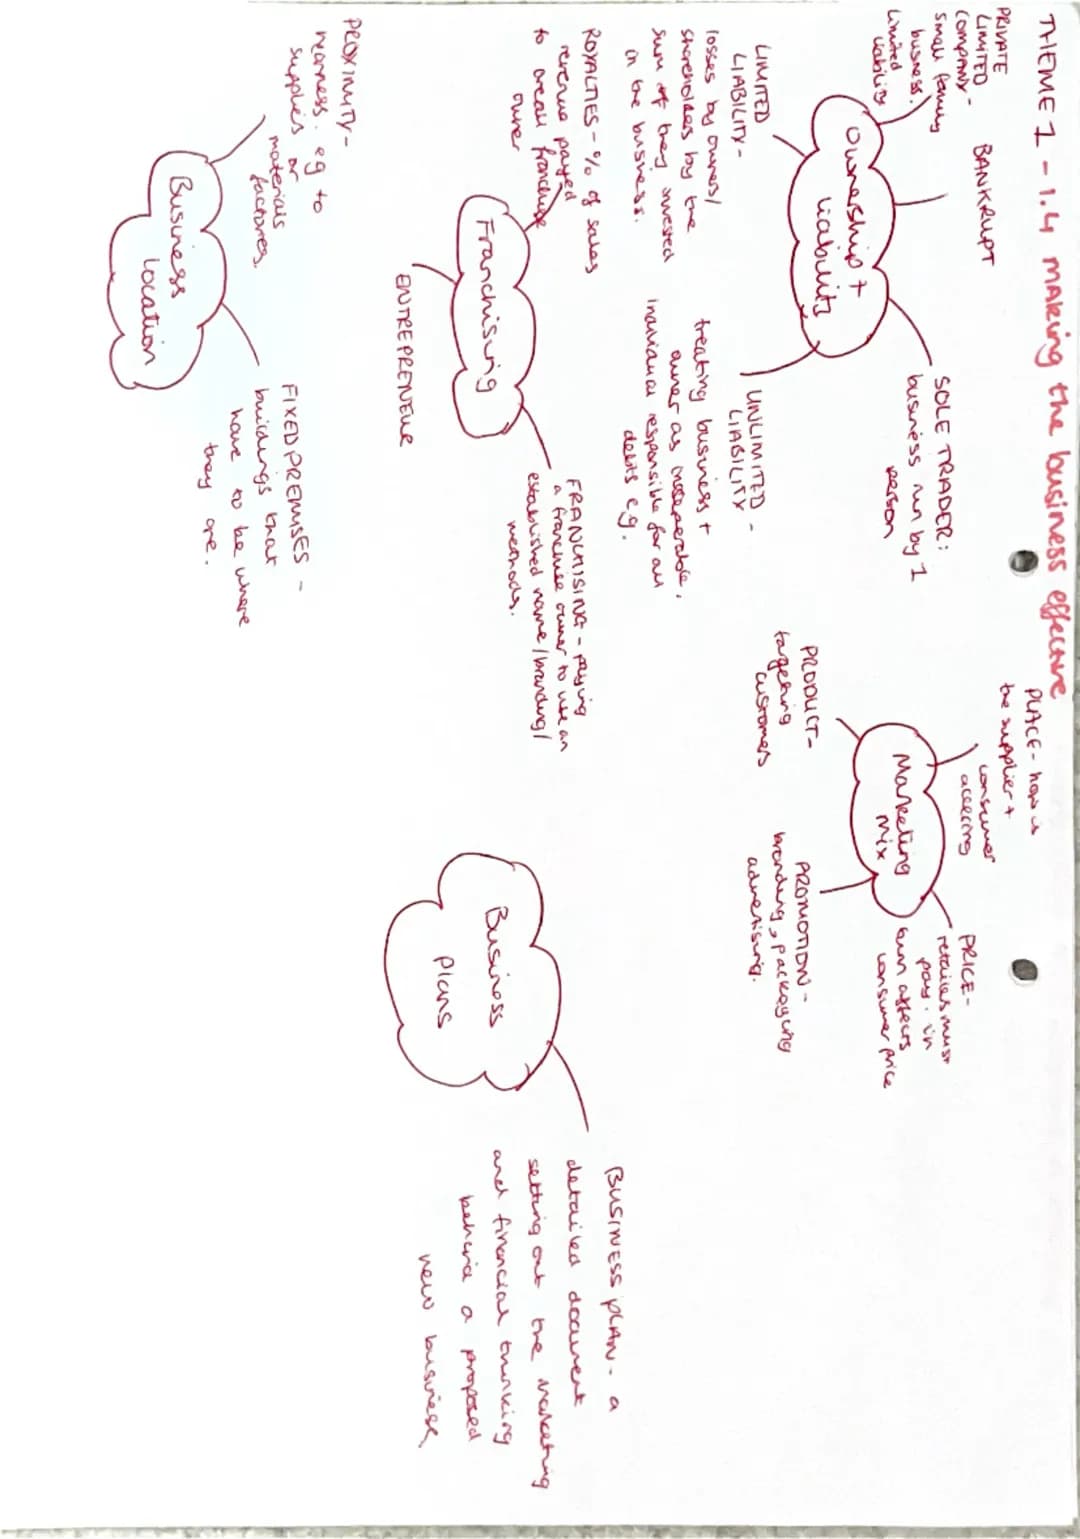 THEME 1 - 1.4 making the business effective
PRIVATE
LIMITED
COMPANY -
small family
business.
limited
liability
BANKRUPT
Ownership +
liability
SOLE TRADER:
business run by 1
person
LIMITED
LIABILITY -
losses by owners/
shareholders by the
sum of they invested
in the business.
UNLIMITED -
LIABILITY -
treating business +
owner as inseperable.
individual responsible for all
debts eg.
PLACE - how is
the supplier +
consumer
accessing
Marketing
Mix
PRICE -
retailers must
pay. in
turn affects
consumer price
PRODUCT -
targeting
customers
PROMOTION -
branding, packaging
advertising.
ROYALTIES - % of sales
revenue payed
to overall franchise
owner
Franchising
ENTREPRENEUR
FRANCHISING - paying
a franchise owner to use an
established name/branding/
methods.
Business
plans
BUSINESS PLAN - a
detailed document
setting out the marketing
and financial thinking
behind a proposed
new business
PROXIMITY -
nearness. eg to
supplies or
materials
factories.
Business
location
FIXED PREMISES -
buildings that
have to be where
they are.